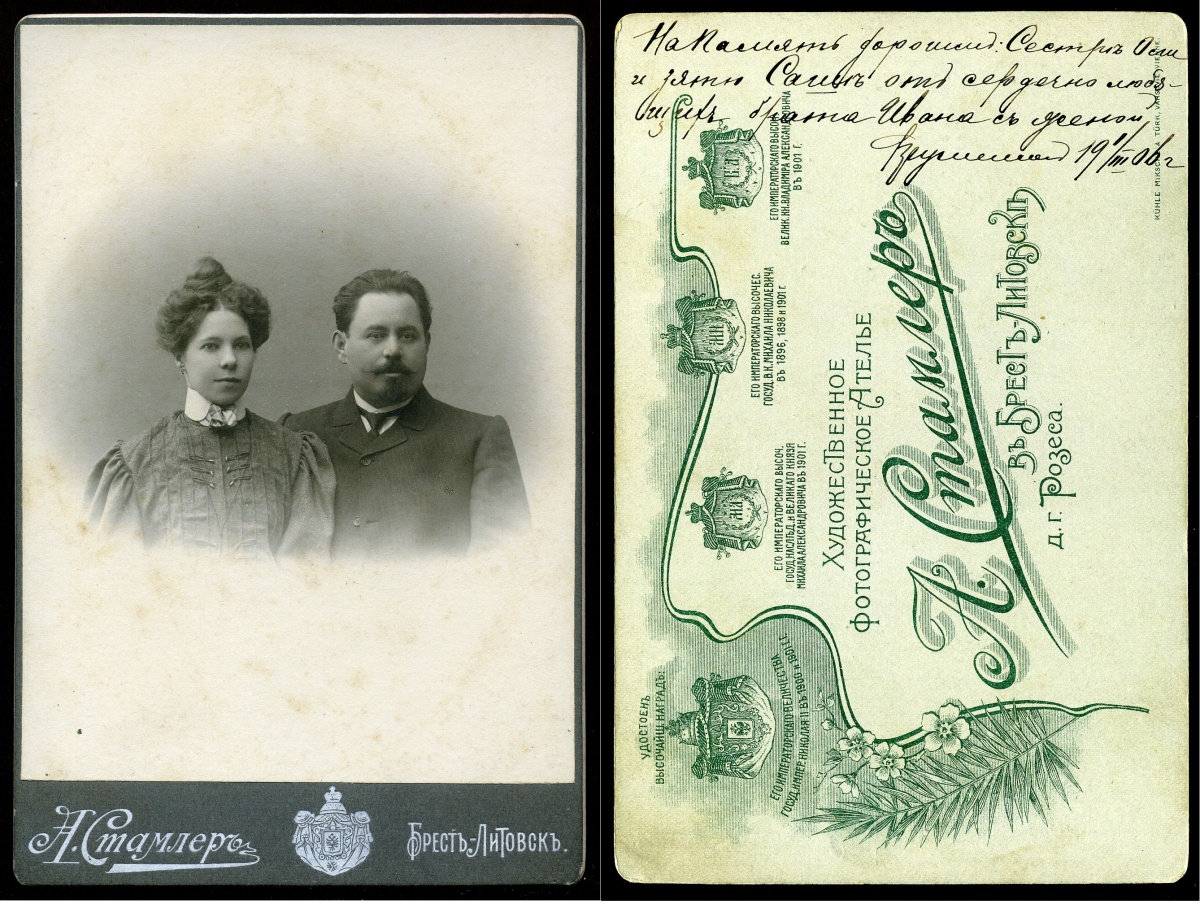 А. Стамлеръ
Брестъ-Литовскъ.
На память дорогимъ: Сестрѣ Оли
и зятю Сашѣ отъ сердечно любя-
щихъ брата Ивана съ женой
19 1/III 06 г
УДОСТОЕНЪ
ВЫСОЧАЙШ. НАГРАДЪ:
ЕГО ИМПЕРАТОРСКАГО ВЕЛИЧЕСТВА
ГОСУД. ИМПЕР. НИКОЛАЯ II ВЪ 1900 и 1901 г.г.
ЕГО ИМПЕРАТОРСКАГО ВЫСОЧ.
ГОСУД. НАСЛѢД. и ВЕЛИКАГО КНЯЗЯ
МИХАИЛА АЛЕКСАНДРОВИЧА ВЪ 1901 Г.
ЕГО ИМПЕРАТОРСКАГО ВЫСОЧЕС.
ГОСУД. В.К. МИХАИЛА НИКОЛАЕВИЧА
ВЪ 1896, 1898 и 1901 г.
ЕГО ИМПЕРАТОРСКАГО ВЫСОЧ.
ВЕЛИК. КН. ВЛАДИМІРА АЛЕКСАНДРОВИЧА
ВЪ 1901 Г.
ХУДОЖЕСТВЕННОЕ
ФОТОГРАФИЧЕСКОЕ АТЕЛЬЕ
А. Стамлеръ
въ Брестъ-Литовскѣ
д. г. Розеса.
KÜHLE MIKSCHE & TÜRK, VARSOVIE VIENNE